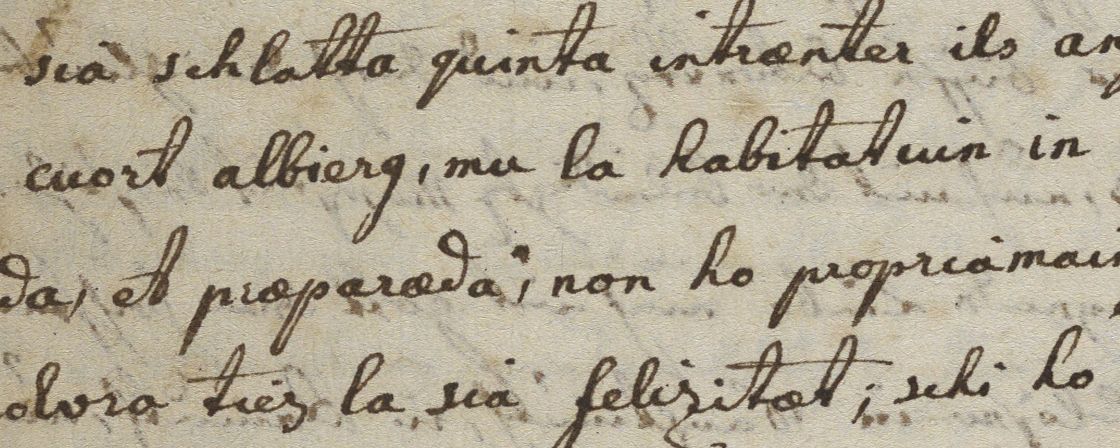 sia schlatta quinta intrænter ils an
cuort albierg, mu la habitatiun in
da, et præparæda; non ho propriamain
olvra tiers la sia felizitæt; schi ho